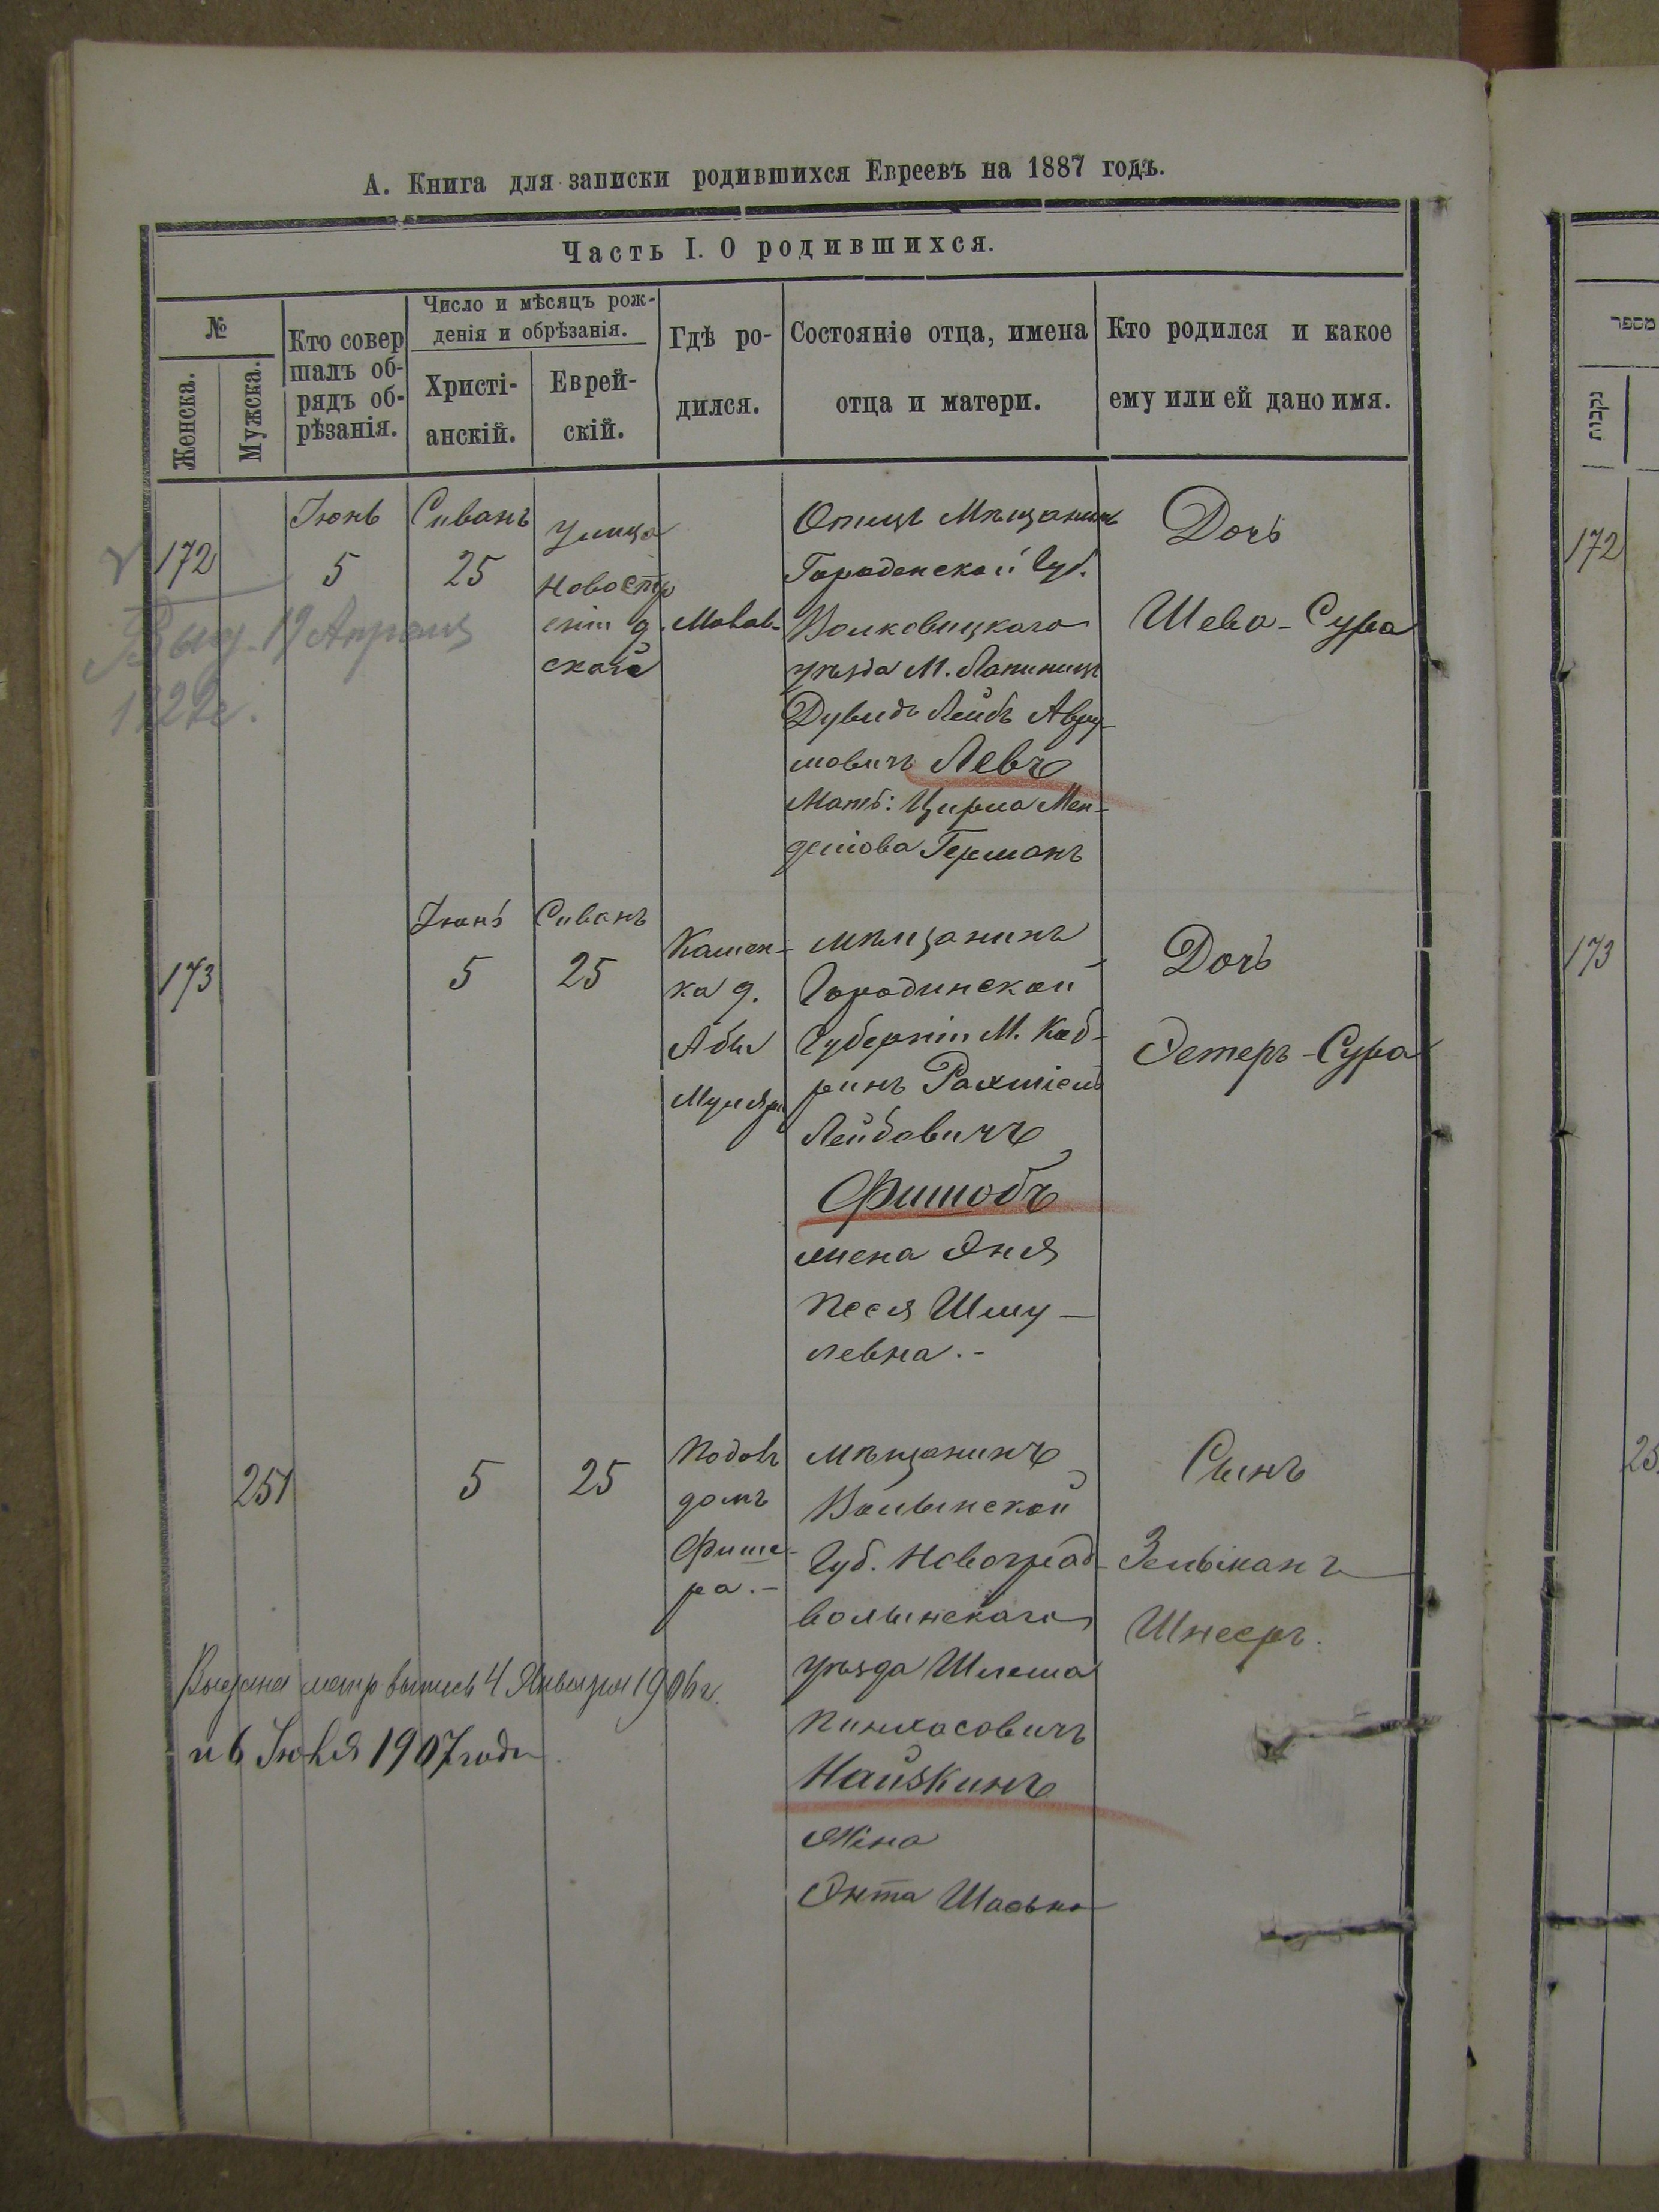 А. Книга для записки родившихся Евреевъ на 1887 годъ.
Часть I. О родившихся.
№
Женска.
Мужска.
Кто совер
шалъ об-
рядъ об-
рѣзанія.
Число и мѣсяцъ рож-
денія и обрѣзанія.
Христі-
анскій.
Еврей-
скій.
Гдѣ ро-
дился.
Состояніе отца, имена
отца и матери.
Кто родился и какое
ему или ей дано имя.
172
Іюнь
5
Сиванъ
25
Улица
Новостр
скай
Отецъ Мѣщанинъ
Городенской Губ.
Волковицкаго
уѣзда М. Лапиницъ
Дувидъ Лейбъ Авру
мовичъ Левъ
Мать: Цирма Мен-
делова Германъ
Дочь
Шева-Сура
Выд. 19 Апреля
173
Іюнь
5
Сиванъ
25
Камен-
ка д.
Абы
Муляра
Мѣщанинъ
Городинской
Губерніи М. Коб-
ринъ Рахміель
Лейбовичъ
Фишобъ
жена Эня
Песя Шму-
левна.-
Дочь
Эстеръ-Сура
251
5
25
Подолъ
домъ
Фише-
ра.-
Мѣщанинъ
Волынской
Губ. Новоград-
волынскаго
уѣзда Шлема
Пинхасовичъ
Найзкинъ
жена
Энта Шасьно
Сынъ
Зельманъ
Шнееръ.
Выдана метр выпись 4 Января 1906 г.
и 6 Іюля 1907 года
מספר
נקבות
172
173
25